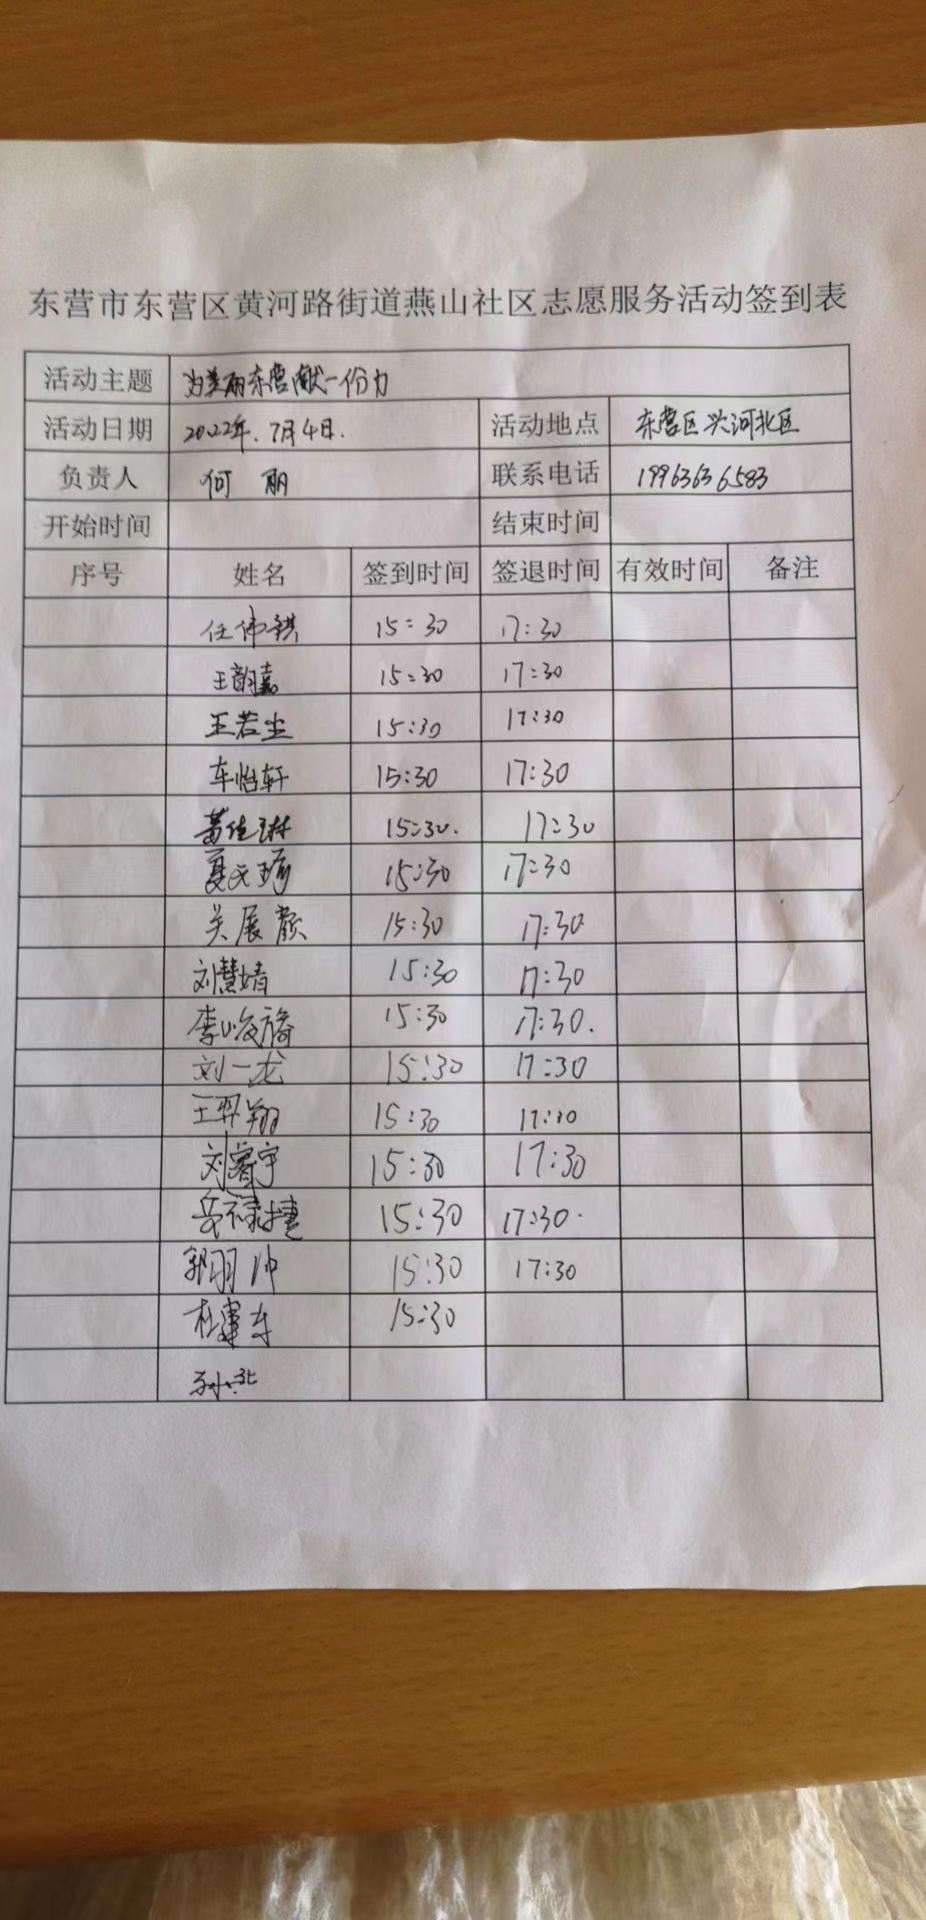 东营市东营区黄河路街道燕山社区志愿服务活动签到表
活动主题 为美丽东营献一份力
活动日期 2022年.7月4日. 活动地点 东营区兴河北区
负责人 何丽 联系电话 19963636583
开始时间 结束时间
序号 姓名 签到时间 签退时间 有效时间 备注
任伟祺 15:30 17:30
王韵嘉 15:30 17:30
王若尘 15:30 17:30
车怡轩 15:30 17:30
黄佳琳 15:30. 17:30
15:30 17:30
关展颜 15:30 17:30
刘慧婧 15:30 17:30
李峻旖 15:30 17:30.
刘一龙 15:30 17:30
王羿翔 15:30 17:30
刘睿宇 15:30 17:30
15:30 17:30.
郭羽帅 15:30 17:30
杜建东 15:30